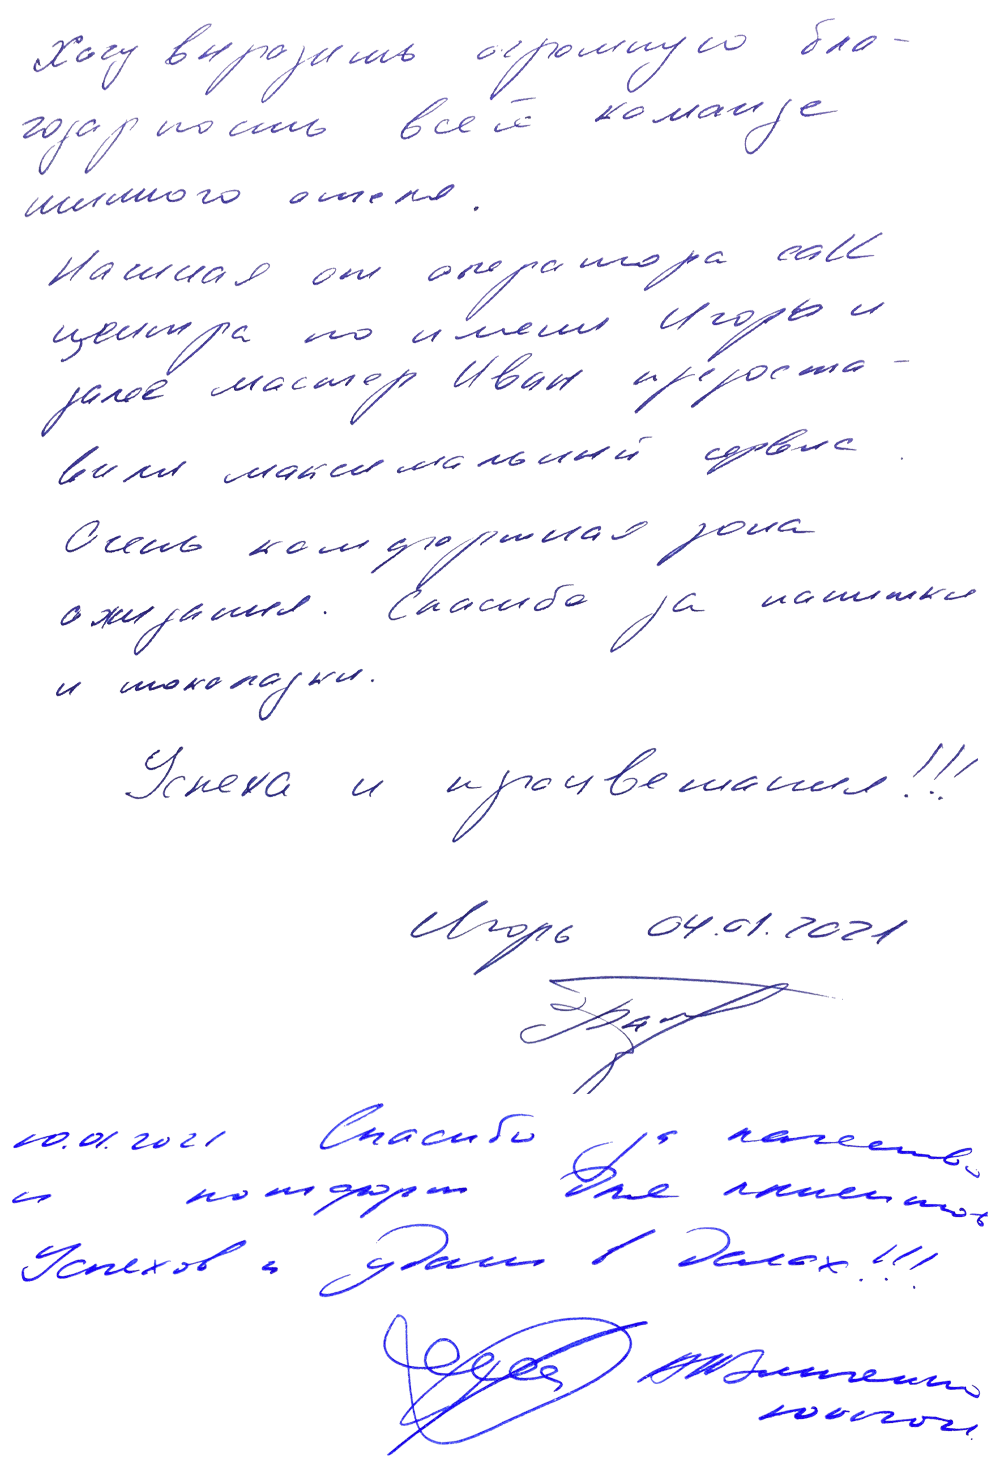 Хочу выразить огромную бла-
годарность всей команде
шинного отеля.
Начиная от оператора call
центра по имени Игорь и
далее мастер Иван предоста-
вили максимальный сервис.
Очень комфортная зона
ожидания. Спасибо за напитки
и шоколадки.
Успеха и процветания!!!
Игорь 04.01.2021
10.01.2021 Спасибо за качество
и комфорт для клиентов
Успехов и удачи в делах!!!